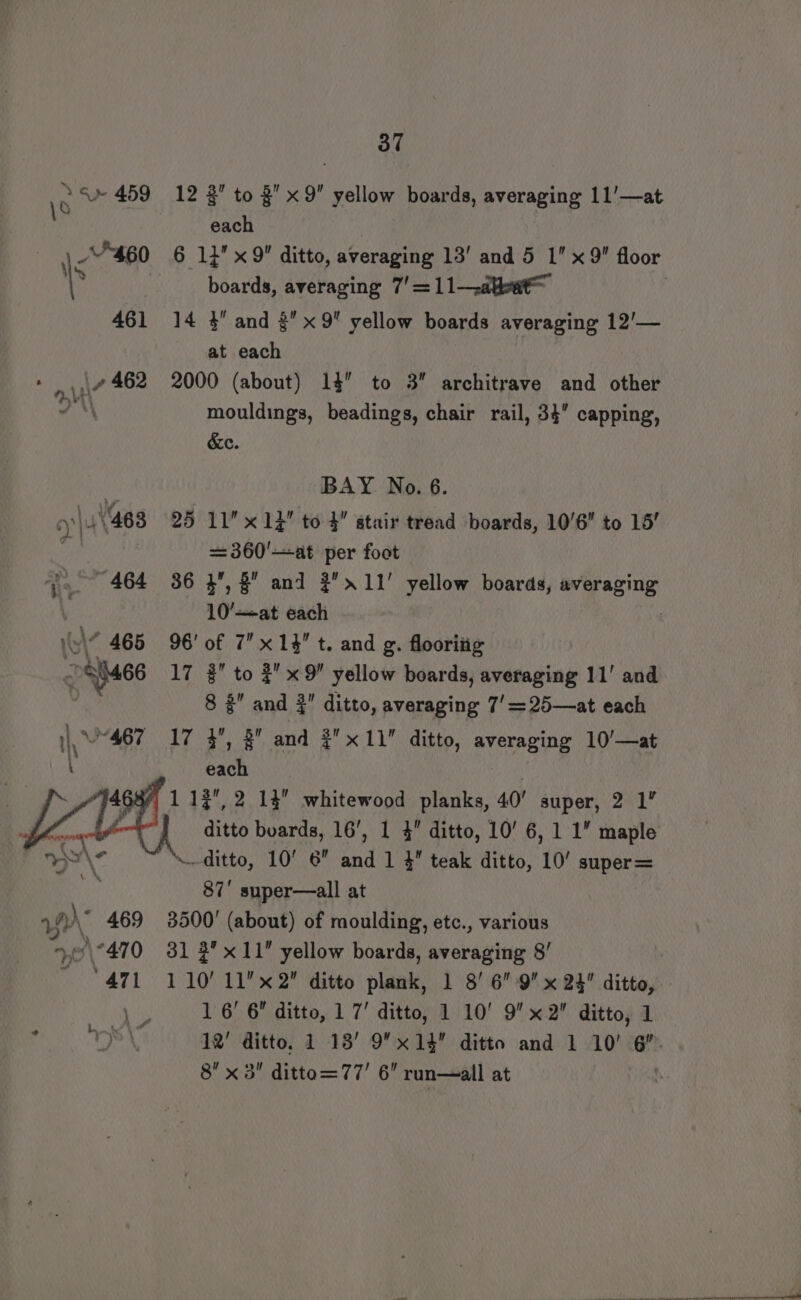 37
459 12 ¾" to ⅝" x 9" yellow boards, averaging 11'—at
each
460 6 1¼" x 9" ditto, averaging 13' and 5 1" x 9" floor
boards, averaging 7' = 11—all at
461 14 ½" and ¾" x 9" yellow boards averaging 12'—
at each
462 2000 (about) 1½" to 3" architrave and other
mouldings, beadings, chair rail, 3½" capping,
&c.
BAY No. 6.
463 25 11" x 1¼" to ½" stair tread boards, 10'6" to 15'
= 360'—at per foot
464 36 ½", ⅝" and ¾" x 11' yellow boards, averaging
10'—at each
465 96' of 7" x 1½" t. and g. flooring
466 17 ⅝" to ¾" x 9" yellow boards, averaging 11' and
8 ⅝" and ¾" ditto, averaging 7' = 25—at each
467 17 ½", ⅝" and ¾" x 11" ditto, averaging 10'—at
each
468 1 1¾", 2 1½" whitewood planks, 40' super, 2 1"
ditto boards, 16', 1 ½" ditto, 10' 6, 1 1" maple
ditto, 10' 6" and 1 ½" teak ditto, 10' super =
87' super—all at
469 3500' (about) of moulding, etc., various
470 31 ¾" x 11" yellow boards, averaging 8'
471 1 10' 11" x 2" ditto plank, 1 8' 6" 9" x 2½" ditto,
1 6' 6" ditto, 1 7' ditto, 1 10' 9" x 2" ditto, 1
12' ditto, 1 13' 9" x 1½" ditto and 1 10' 6"
8" x 3" ditto = 77' 6" run—all at